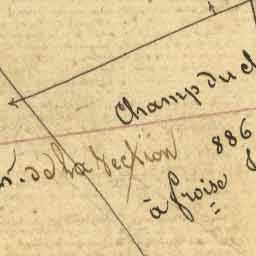 Champ du
de la section
886
à froise